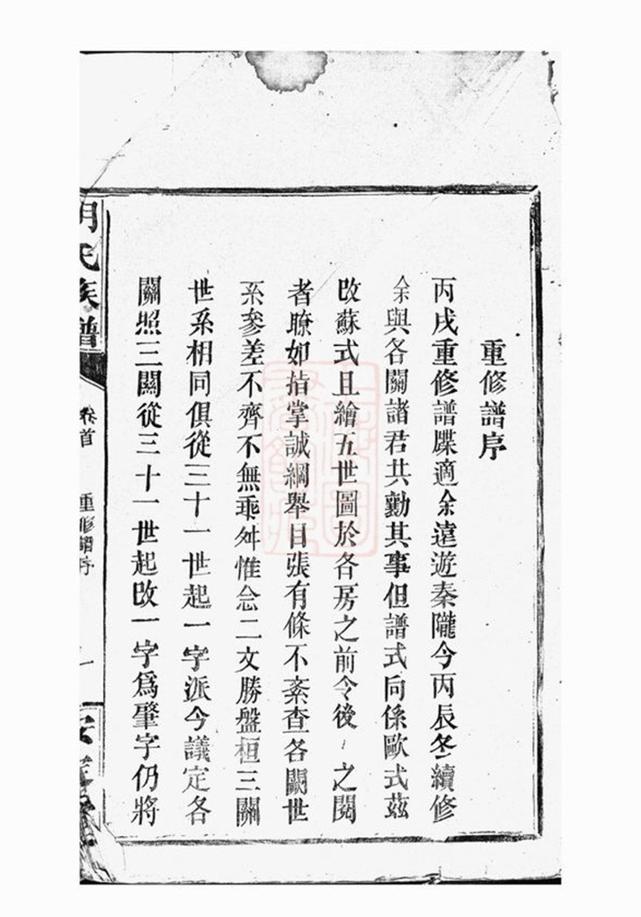 重修譜序
丙戌重修譜牒適余遠遊秦隴今丙辰冬續修
余與各關諸君共勷其事但譜式向係歐式茲
改蘇式且繪五世圖於各房之前令後之閱
者瞭如指掌誠綱舉目張有條不紊查各關世
系參差不齊不無乖舛惟念二文勝盤桓三關
世系相同俱從三十一世起一字派今議定各
關照三關從三十一世起改一字爲肇字仍將
氏族譜
卷首
重修譜序
一